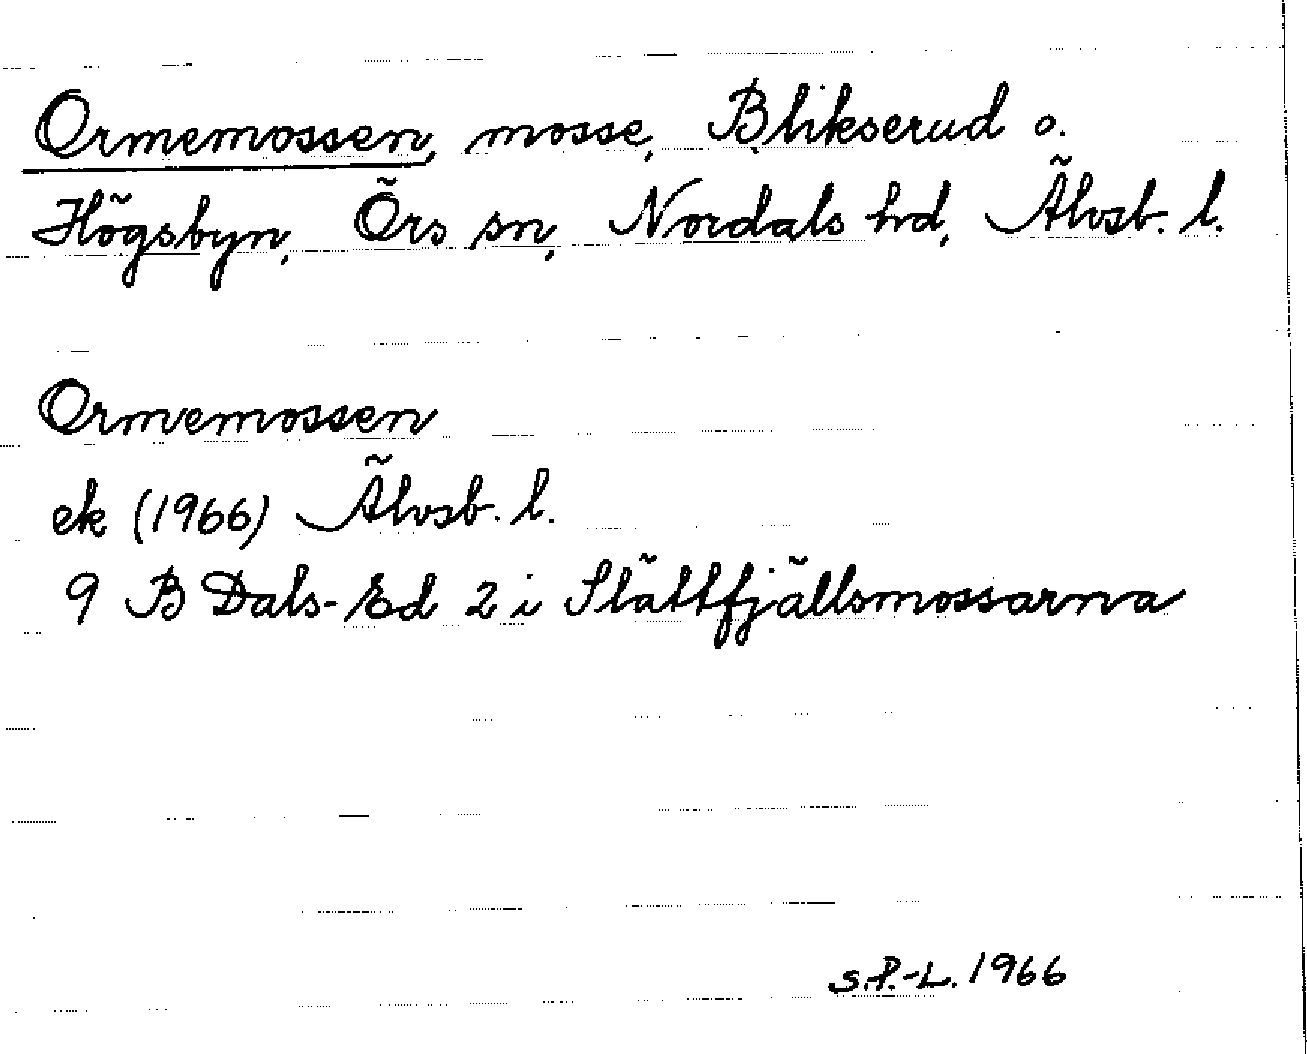 Ormemossen, mosse, Blikserud o.
Högsbyn, Örs sn, Nordals hd, Älvsb. l.
Ormemossen
ek (1966) Älvsb. l.
9 B Dals-Ed 2 i Slättfjällsmossarna
S.P.-L. 1966